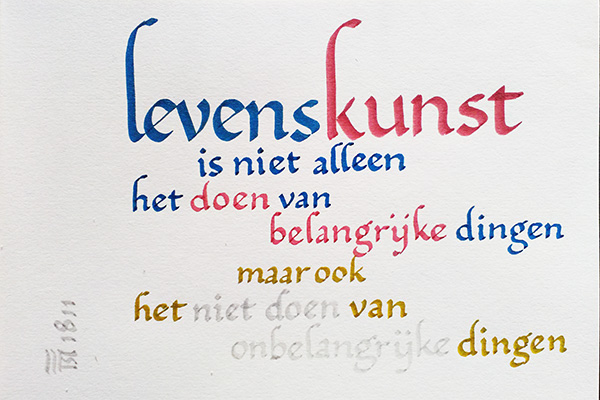 levenskunst
is niet alleen
het doen van
belangrijke dingen
maar ook
het niet doen van
onbelangrijke dingen
1811